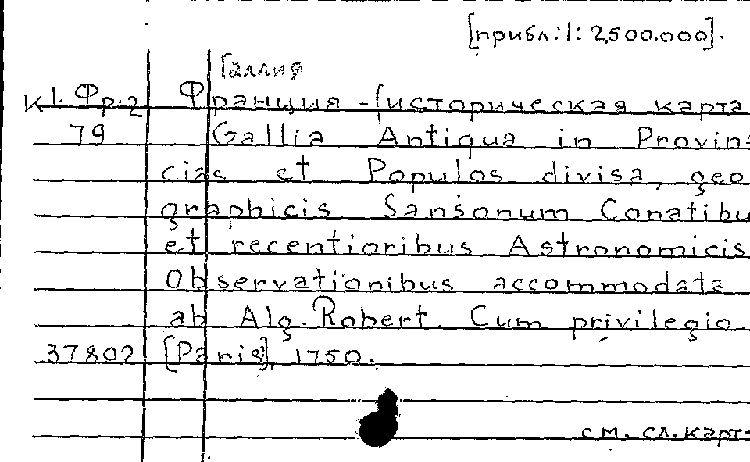 [прибл: 1: 2,500.000].
Галлия
К1. Фр.2 Франция - [историческая карта
79 Gallia Antiqua in Provin
cias et Populos divisa, geo
graphicis Sansonum Conatibu
et recentioribus Astronomicis
Observationibus accommodata
ab Alg. Robert. Cum privilegio
37802 [Paris], 1750.
см. сл. карт